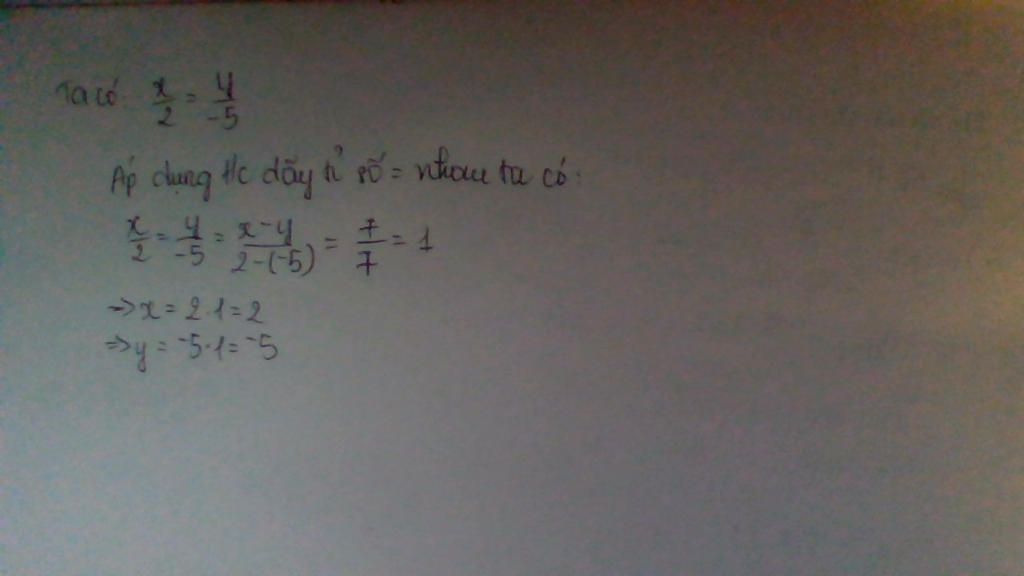 Ta có: x/2 = y/-5
Áp dụng t/c dãy tỉ số = nhau ta có:
x/2 = y/-5 = x-y/2-(-5) = 7/7 = 1
=> x = 2.1 = 2
=> y = -5.1 = -5